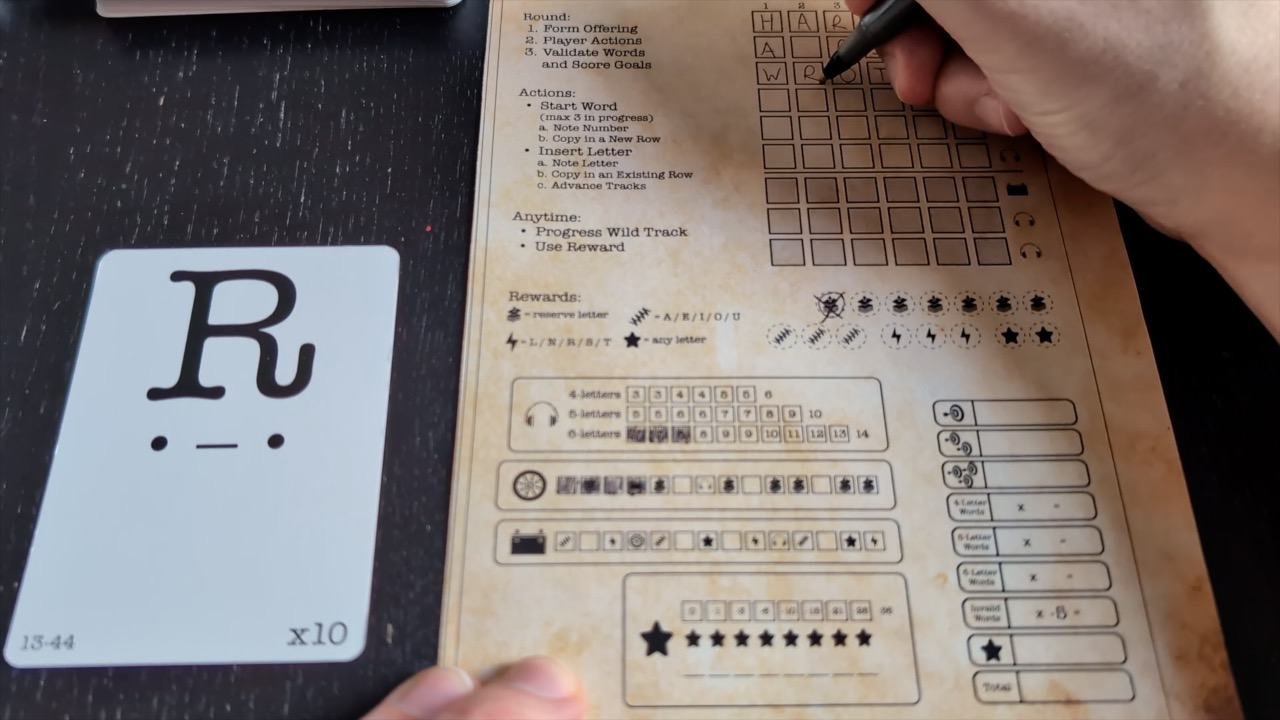 R
13-44
x10
Round:
1. Form Offering
2. Player Actions
3. Validate Words
and Score Goals
Actions:
• Start Word
(max 3 in progress)
a. Note Number
b. Copy in a New Row
• Insert Letter
a. Note Letter
b. Copy in an Existing Row
c. Advance Tracks
Anytime:
• Progress Wild Track
• Use Reward
1 2 3
H A R
A
W R O T
Rewards:
= reserve letter = A/E/I/O/U
= L/N/R/S/T = any letter
4-letters 3 3 4 4 5 5 6
5-letters 5 5 6 6 7 7 8 9 10
6-letters 8 9 9 10 11 12 13 14
4-Letter Words x =
5-Letter Words x =
6-Letter Words x =
Invalid Words x -5 =
Total